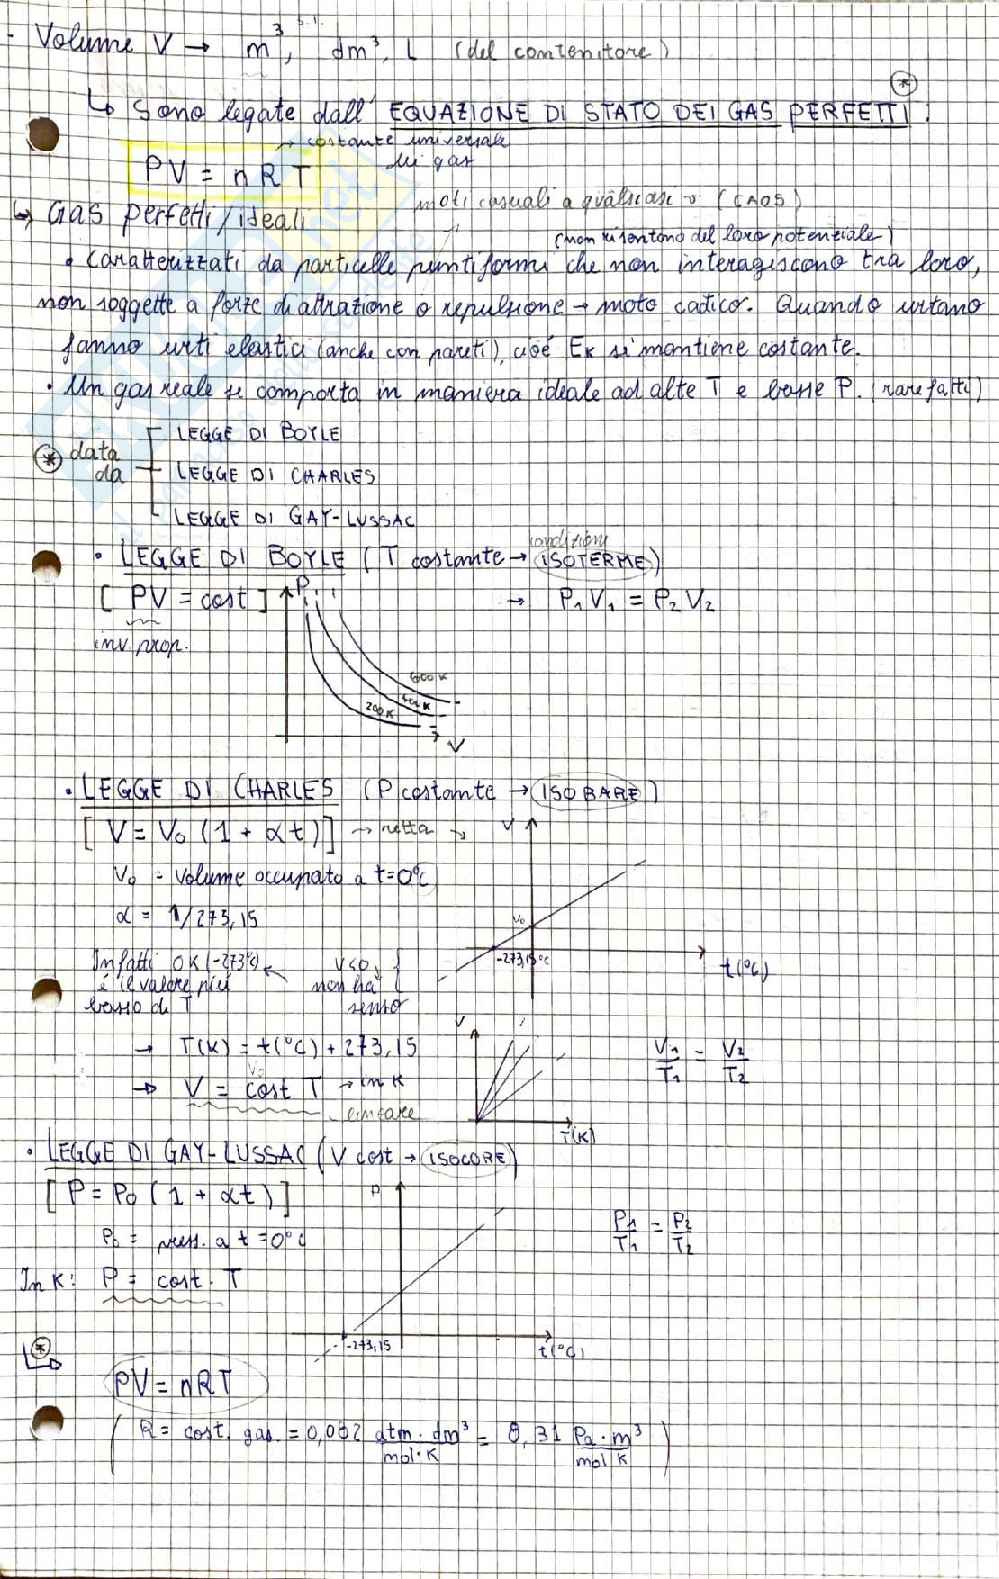 - Volume V → m³, dm³, L (del contenitore)
S.I.
↳ sono legate dall' EQUAZIONE DI STATO DEI GAS PERFETTI: *
→ costante universale
dei gas
PV = nRT
moti casuali a qualsiasi v (CAOS)
↳ Gas perfetti/ideali
(non risentono del loro potenziale)
• Caratterizzati da particelle puntiformi che non interagiscono tra loro,
non soggette a forze di attrazione o repulsione → moto caotico. Quando urtano
fanno urti elastici (anche con pareti), cioè Ek si mantiene costante.
• Un gas reale si comporta in maniera ideale ad alte T e basse P. (rarefatti)
LEGGE DI BOYLE
* data
da
LEGGE DI CHARLES
LEGGE DI GAY-LUSSAC
condizioni
• LEGGE DI BOYLE (T costante → ISOTERME)
[PV = cost] P → P₁V₁ = P₂V₂
inv. prop.
600K
400K
200K
V
• LEGGE DI CHARLES (P costante → ISOBARE)
[V = V₀ (1 + αt)] → retta → V
V₀ = volume occupato a t=0°C
α = 1/273,15
V₀
Infatti 0K (-273°C) ← V<0, -273,15°C t(°C)
è il valore più non ha
basso di T senso
→ T(K) = t(°C) + 273,15 V
V₁/T₁ = V₂/T₂
→ V = cost T → in K
lineare
T(K)
• LEGGE DI GAY-LUSSAC (V cost → ISOCORE)
[P = P₀ (1 + αt)] P
P₁/T₁ = P₂/T₂
P₀ = press. a t = 0°C
In K: P = cost. T
-273,15 t(°C)
*
PV = nRT
(R = cost. gas = 0,082 atm·dm³/mol·K = 8,31 Pa·m³/mol K)